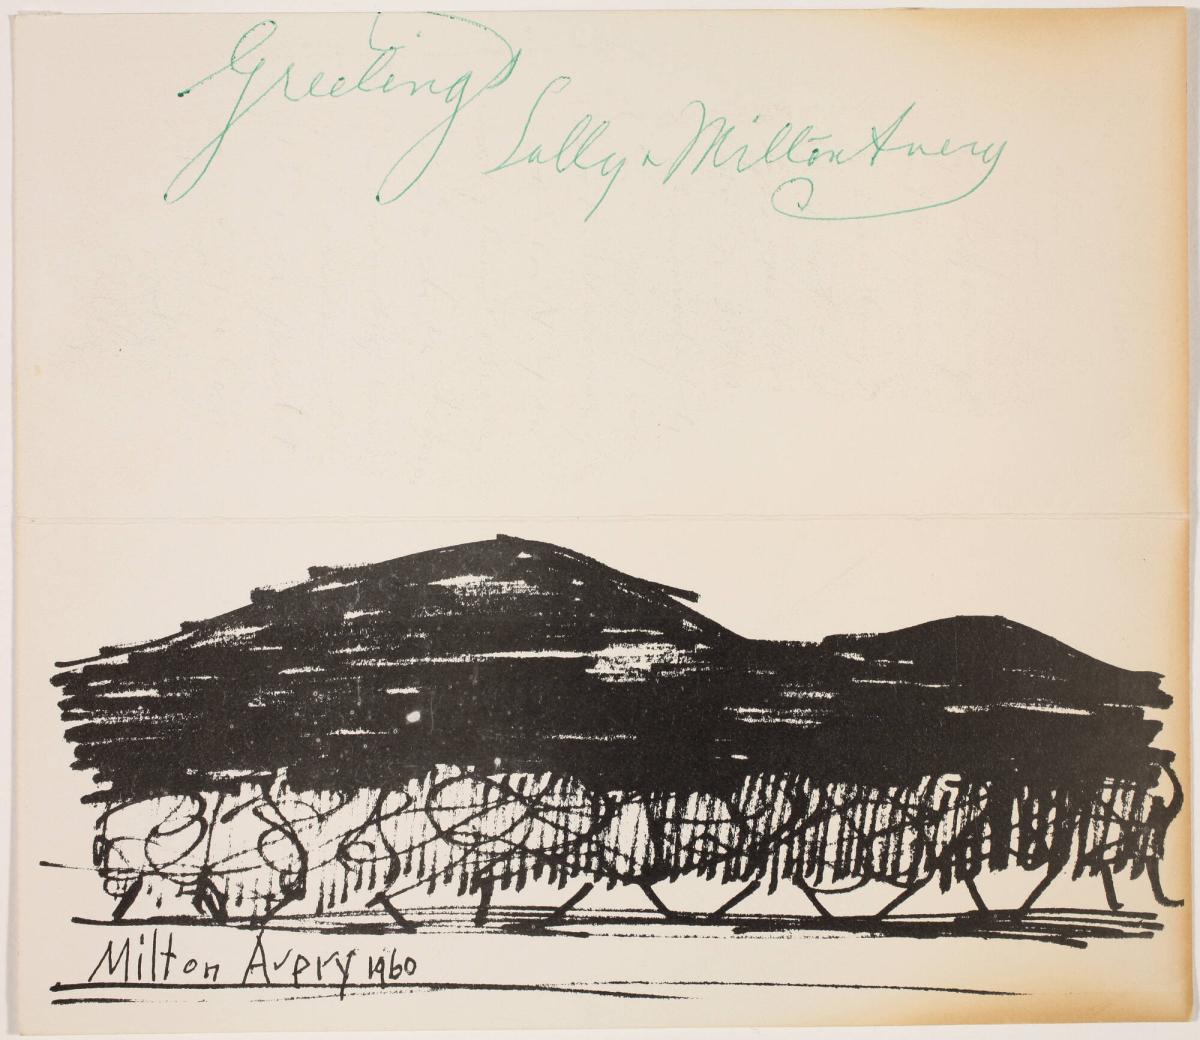 Greetings
Sally & Milton Avery
Milton Avery 1960